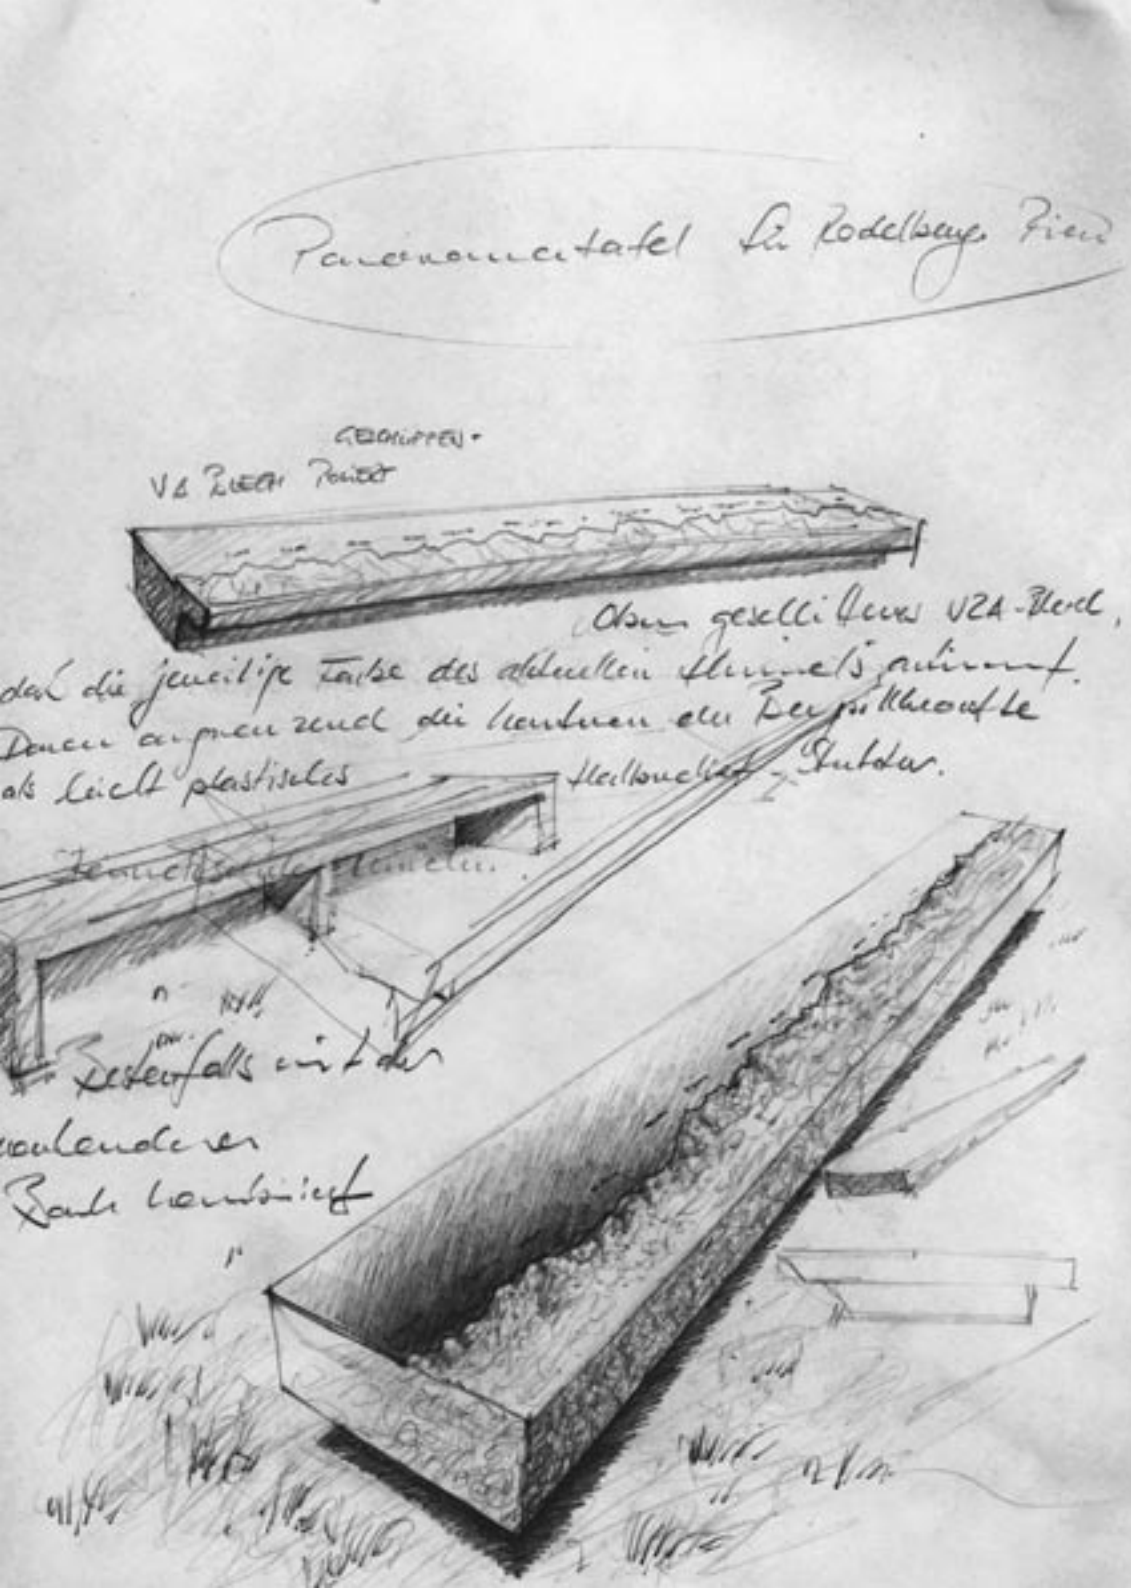 Panoramatafel für Rodelberg Riem
GESCHLIFFEN -
VA BLECH POLIERT
Oben geschliffenes V2A-Blech,
daß die jeweilige Farbe des aktuellen Himmels annimmt.
Daran angrenzend die Konturen der
als leicht plastisches Halbrelief - Struktur.
Bestenfalls mit der
vorhandenen
Bank kombiniert